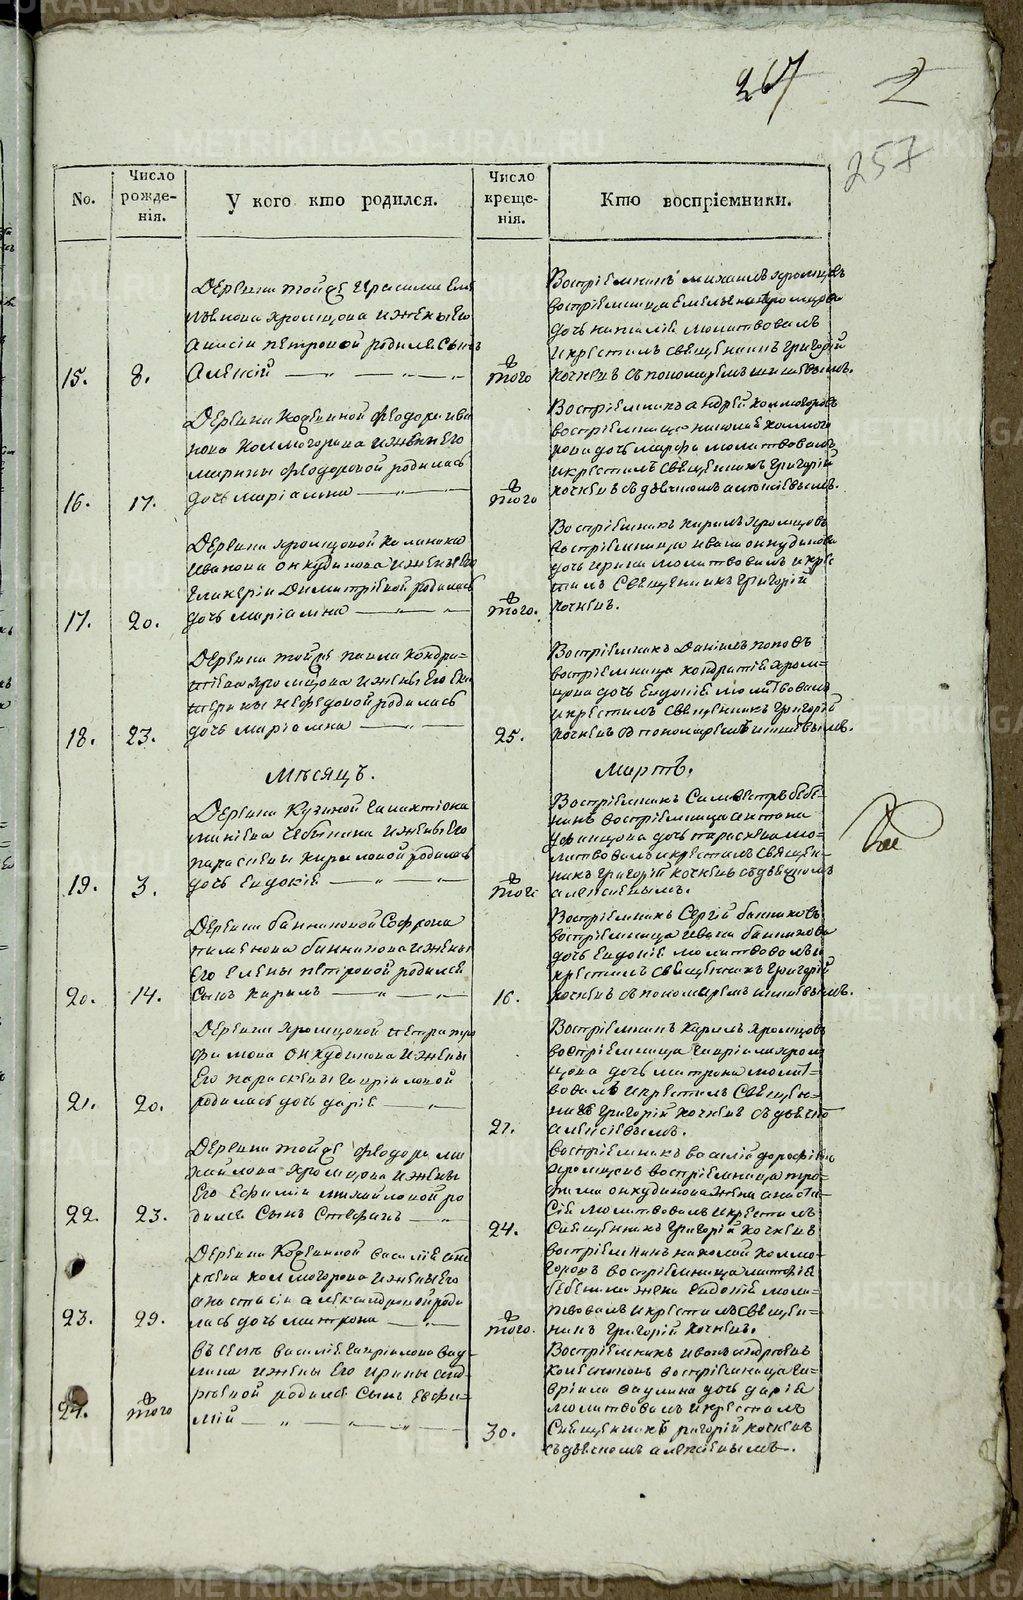 267
2
257
No.
Число рожде-нія.
У кого кто родился.
Число креще-нія.
Кто воспріемники.
Деревни тойже Герасима Еме
льянова Хромцова и жены его
Анисіи Петровой родился сынъ
15. 8. Алексій
того
Воспріемникъ Михаилъ Хромцовъ
воспріемница Емельяна Хромцова
дочь Наталія молитвовалъ
и крестилъ священникъ Григорій
Кочневъ съ пономаремъ
Деревни Кодинной Феодора Ива
нова Колмогорова и жены его
Марины Феодоровой родилась
16. 17. дочь Маріамна
того
Воспріемникъ Андрей Колмогоровъ
воспріемница Николая Колмого
рова дочь Марфа молитвовалъ
и крестилъ священникъ Григорій
Кочневъ съ дьячкомъ Алексіевымъ.
Деревни Хромцовой Калиника
Иванова Онкудинова и жены его
Гликеріи Димитріевой родилась
17. 20. дочь Маріамна
того.
Воспріемникъ Кирилъ Хромцовъ
воспріемница Ивана Онкудинова
дочь Ирина молитвовалъ и крес
тилъ священникъ Григорій
Кочневъ.
Деревни тойже Павла Кондра-
тіева Хромцова и жены его Ека
терины Нефедовой родилась
18. 23. дочь Маріамна
25.
Воспріемникъ Даніилъ Поповъ
воспріемница Кондратія Хром-
цова дочь Евдокія молитвовалъ
и крестилъ священникъ Григорій
Кочневъ съ пономаремъ
Мѣсяцъ. Мартъ.
Деревни Кузиной Галактіона
жены его
Параскевы Кириловой родилась
19. 3. дочь Евдокія
того
Воспріемникъ Силвестръ Бебе-
нинъ воспріемница Антона
дочь Параскева мо-
литвовалъ и крестилъ священ-
никъ Григорій Кочневъ съ дьячкомъ
Алексіевымъ.
Деревни Банниковой Софрона
Пименова Банникова и жены
его Елены Петровой родился
20. 14. сынъ Кирилъ
16.
Воспріемникъ Сергій Банниковъ
воспріемница Ивана Банникова
дочь Евдокія молитвовалъ и
крестилъ священникъ Григорій
Кочневъ съ пономаремъ
Деревни Хромцовой Петра Тро
фимова Онкудинова и жены
его Параскевы Гавріиловой
21. 20. родилась дочь Дарія
21.
Воспріемникъ Кирилъ Хромцовъ
воспріемница Гавріила Хром
цова дочь Матрона молит-
вовалъ и крестилъ священ-
никъ Григорій Кочневъ съ дьячко
Алексіевымъ.
Деревни тойже Феодора Ми
хайлова Хромцова и жены
его Евфиміи Михайловой ро
22. 23. дился сынъ Стефанъ
24.
Воспріемникъ Василій Дорофіевъ
Хромцовъ воспріемница Тро-
фима Онкудинова жена Анаста-
сія молитвовалъ и крестилъ
священникъ Григорій Кочневъ
Деревни Кодинной Василія Анд
реева Колмогорова и жены его
Анастасіи Александровой роди
23. 29. лась дочь Матрона
того.
воспріемникъ Николай Колмо-
горовъ воспріемница
Бебенина жена Евдокія моли-
твовалъ и крестилъ священ-
никъ Григорій Кочневъ.
въ селѣ Василія Гавріилова Вау
лина и жены его Ирины Анд
реевой родился сынъ Евфи-
24. того мій
30.
Воспріемникъ Иванъ Андреевъ
воспріемница Га-
вріила Ваулина дочь Дарія
молитвовалъ и крестилъ
священникъ Григорій Кочневъ
съ дьячкомъ Алексіевымъ.
METRIKI.GASO-URAL.RU